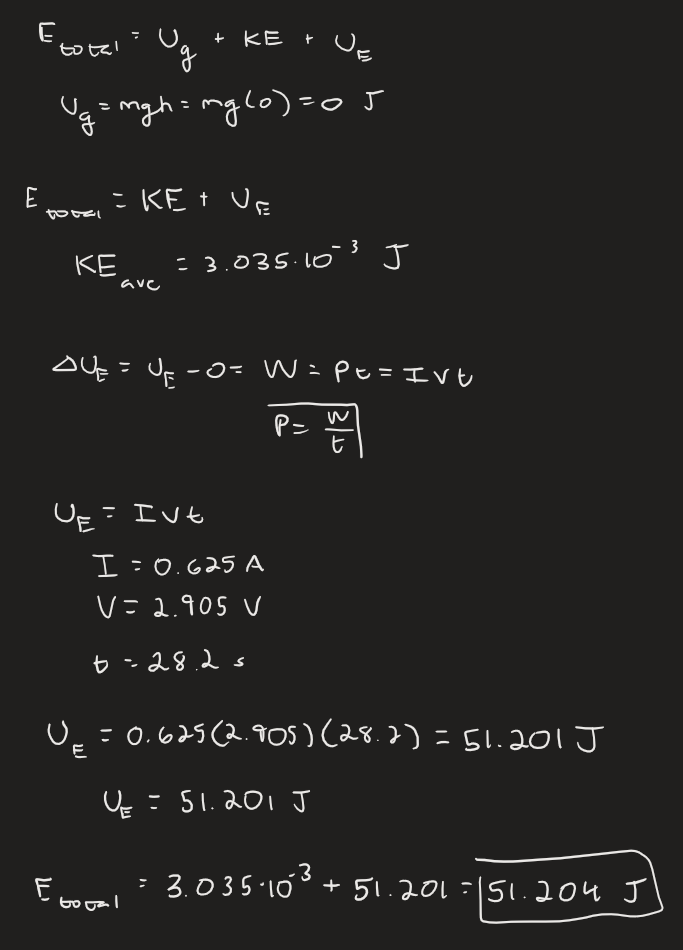 E total = Ug + KE + UE
Ug = mgh = mg(0) = 0 J
E total = KE + UE
KE ave = 3.035·10⁻³ J
ΔUE = UE - 0 = W = Pt = IVt
P = W/t
UE = IVt
I = 0.625 A
V = 2.905 V
t = 28.2 s
UE = 0.625(2.905)(28.2) = 51.201 J
UE = 51.201 J
E total = 3.035·10⁻³ + 51.201 = 51.204 J